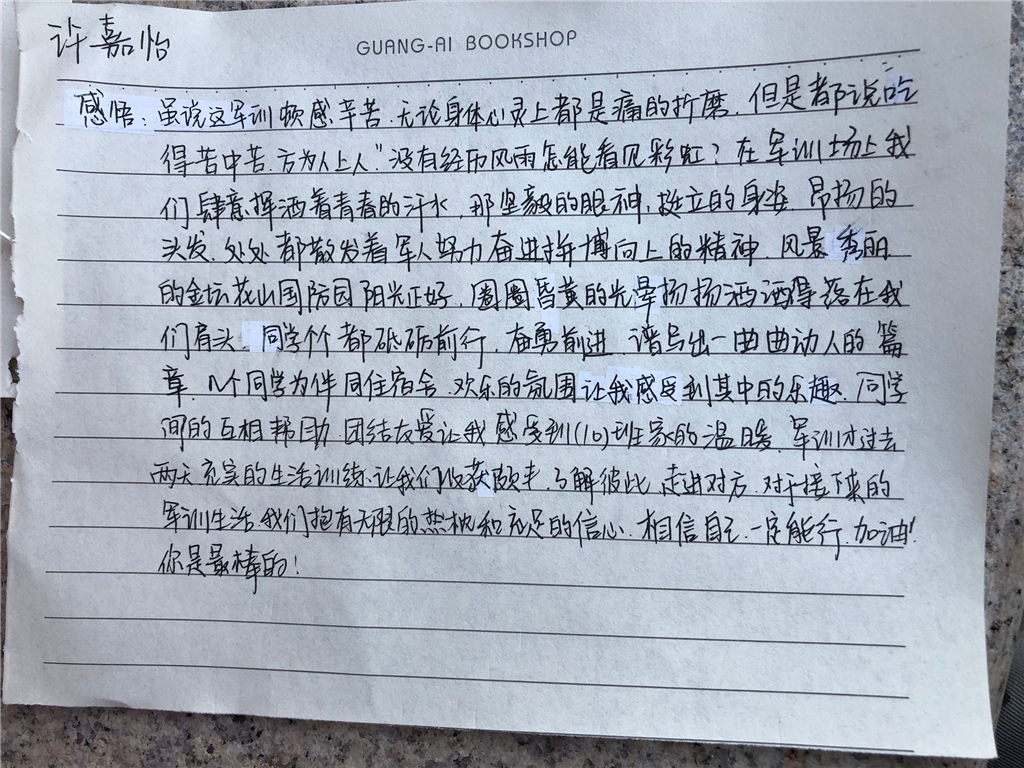 许嘉怡
GUANG-AI BOOKSHOP
感悟：虽说这军训顿感辛苦.无论身体心灵上都是痛的折磨.但是都说“吃
得苦中苦.方为人上人”没有经历风雨怎能看见彩虹？在军训场上我
们肆意挥洒着青春的汗水,那坚毅的眼神,挺立的身姿.昂扬的
头发.处处都散发着军人努力奋进拼博向上的精神.风景秀丽
的金坛花山国防园阳光正好,圈圈昏黄的光晕扬扬洒洒得落在我
们肩头.同学个个都砥砺前行,奋勇前进.谱写出一曲曲动人的篇
章.几个同学为伴同住宿舍.欢乐的氛围让我感受到其中的乐趣.同学
间的互相帮助.团结友爱让我感受到(10)班家的温暖.军训才过去
两天充实的生活训练.让我们收获颇丰.了解彼此.走进对方.对于接下来的
军训生活.我们抱有无限的热忱和充足的信心.相信自己一定能行.加油!
你是最棒的!